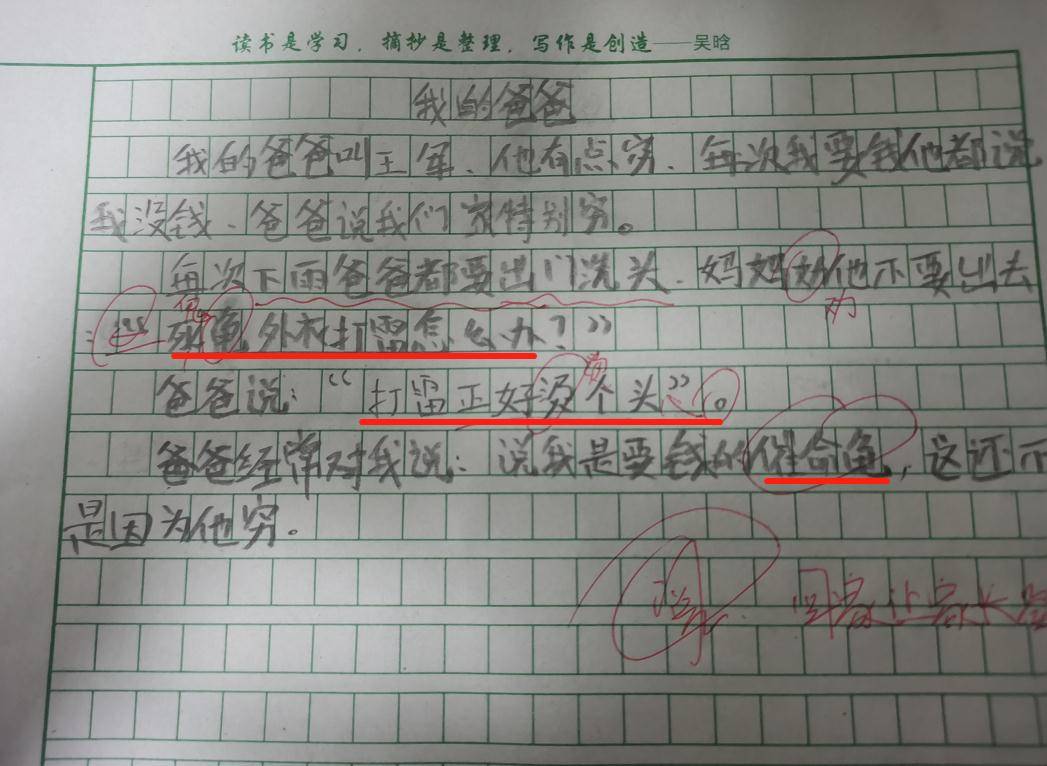 读书是学习，摘抄是整理，写作是创造——吴晗
我的爸爸
我的爸爸叫王军、他有点穷、每次我要钱他都说
我没钱、爸爸说我们家特别穷。
每次下雨爸爸都要出门洗头、妈妈劝他不要出去
劝
:“死鬼外衣打雷怎么办？”
爸爸说：“打雷正好烫个头”。
爸爸经常对我说：说我是要钱的催命鬼，这还不
是因为他穷。
回家让家长